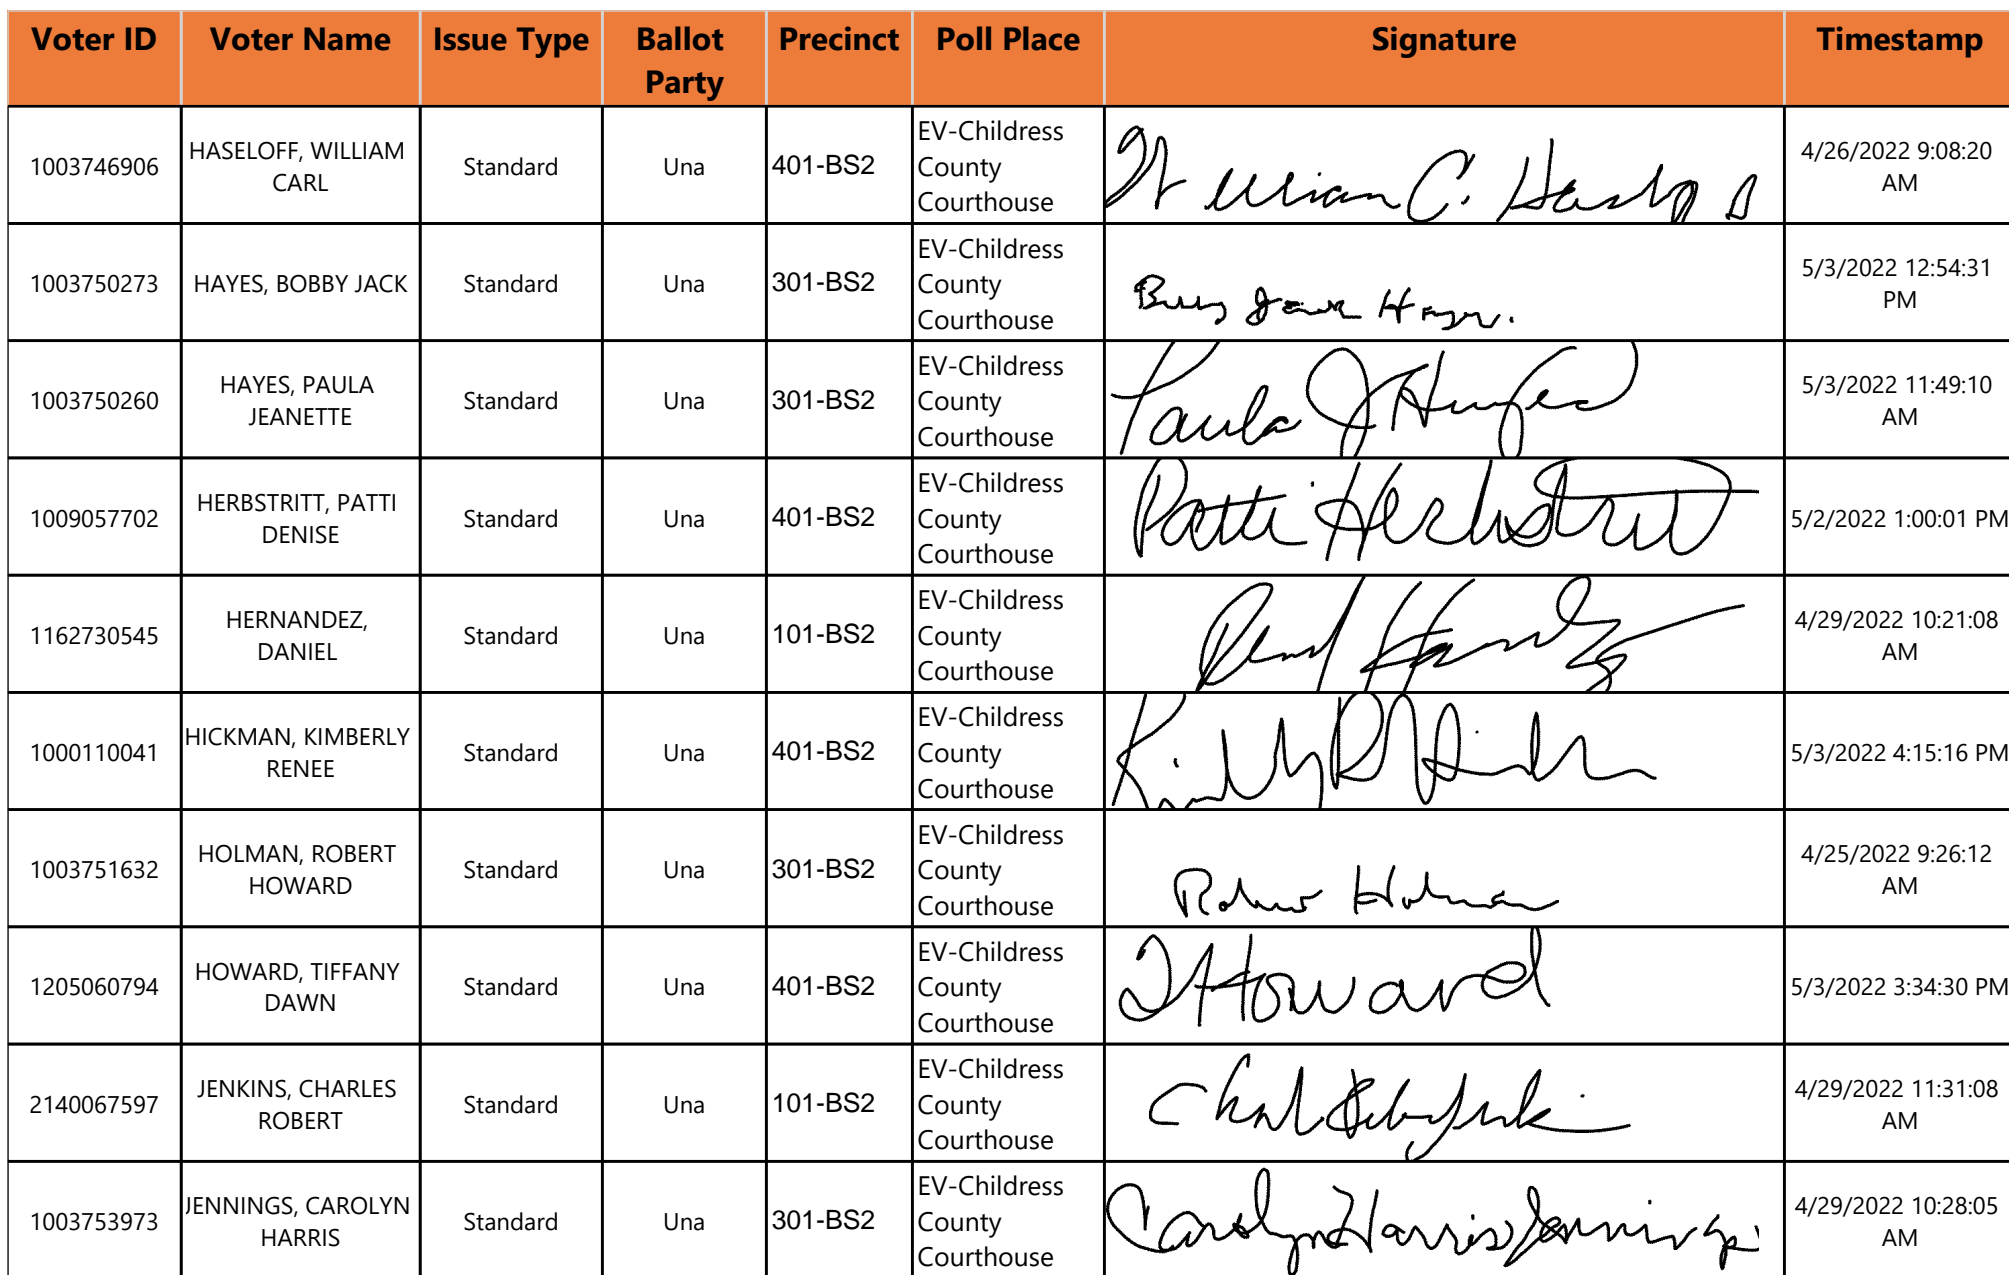 Voter ID Voter Name Issue Type Ballot Party Precinct Poll Place Signature Timestamp
1003746906 HASELOFF, WILLIAM CARL Standard Una 401-BS2 EV-Childress County Courthouse William C. 4/26/2022 9:08:20 AM
1003750273 HAYES, BOBBY JACK Standard Una 301-BS2 EV-Childress County Courthouse Jack 5/3/2022 12:54:31 PM
1003750260 HAYES, PAULA JEANETTE Standard Una 301-BS2 EV-Childress County Courthouse Paula J Hayes 5/3/2022 11:49:10 AM
1009057702 HERBSTRITT, PATTI DENISE Standard Una 401-BS2 EV-Childress County Courthouse Patti Herbstritt 5/2/2022 1:00:01 PM
1162730545 HERNANDEZ, DANIEL Standard Una 101-BS2 EV-Childress County Courthouse 4/29/2022 10:21:08 AM
1000110041 HICKMAN, KIMBERLY RENEE Standard Una 401-BS2 EV-Childress County Courthouse 5/3/2022 4:15:16 PM
1003751632 HOLMAN, ROBERT HOWARD Standard Una 301-BS2 EV-Childress County Courthouse Robert Holman 4/25/2022 9:26:12 AM
1205060794 HOWARD, TIFFANY DAWN Standard Una 401-BS2 EV-Childress County Courthouse T Howard 5/3/2022 3:34:30 PM
2140067597 JENKINS, CHARLES ROBERT Standard Una 101-BS2 EV-Childress County Courthouse 4/29/2022 11:31:08 AM
1003753973 JENNINGS, CAROLYN HARRIS Standard Una 301-BS2 EV-Childress County Courthouse Carolyn Harris Jennings 4/29/2022 10:28:05 AM